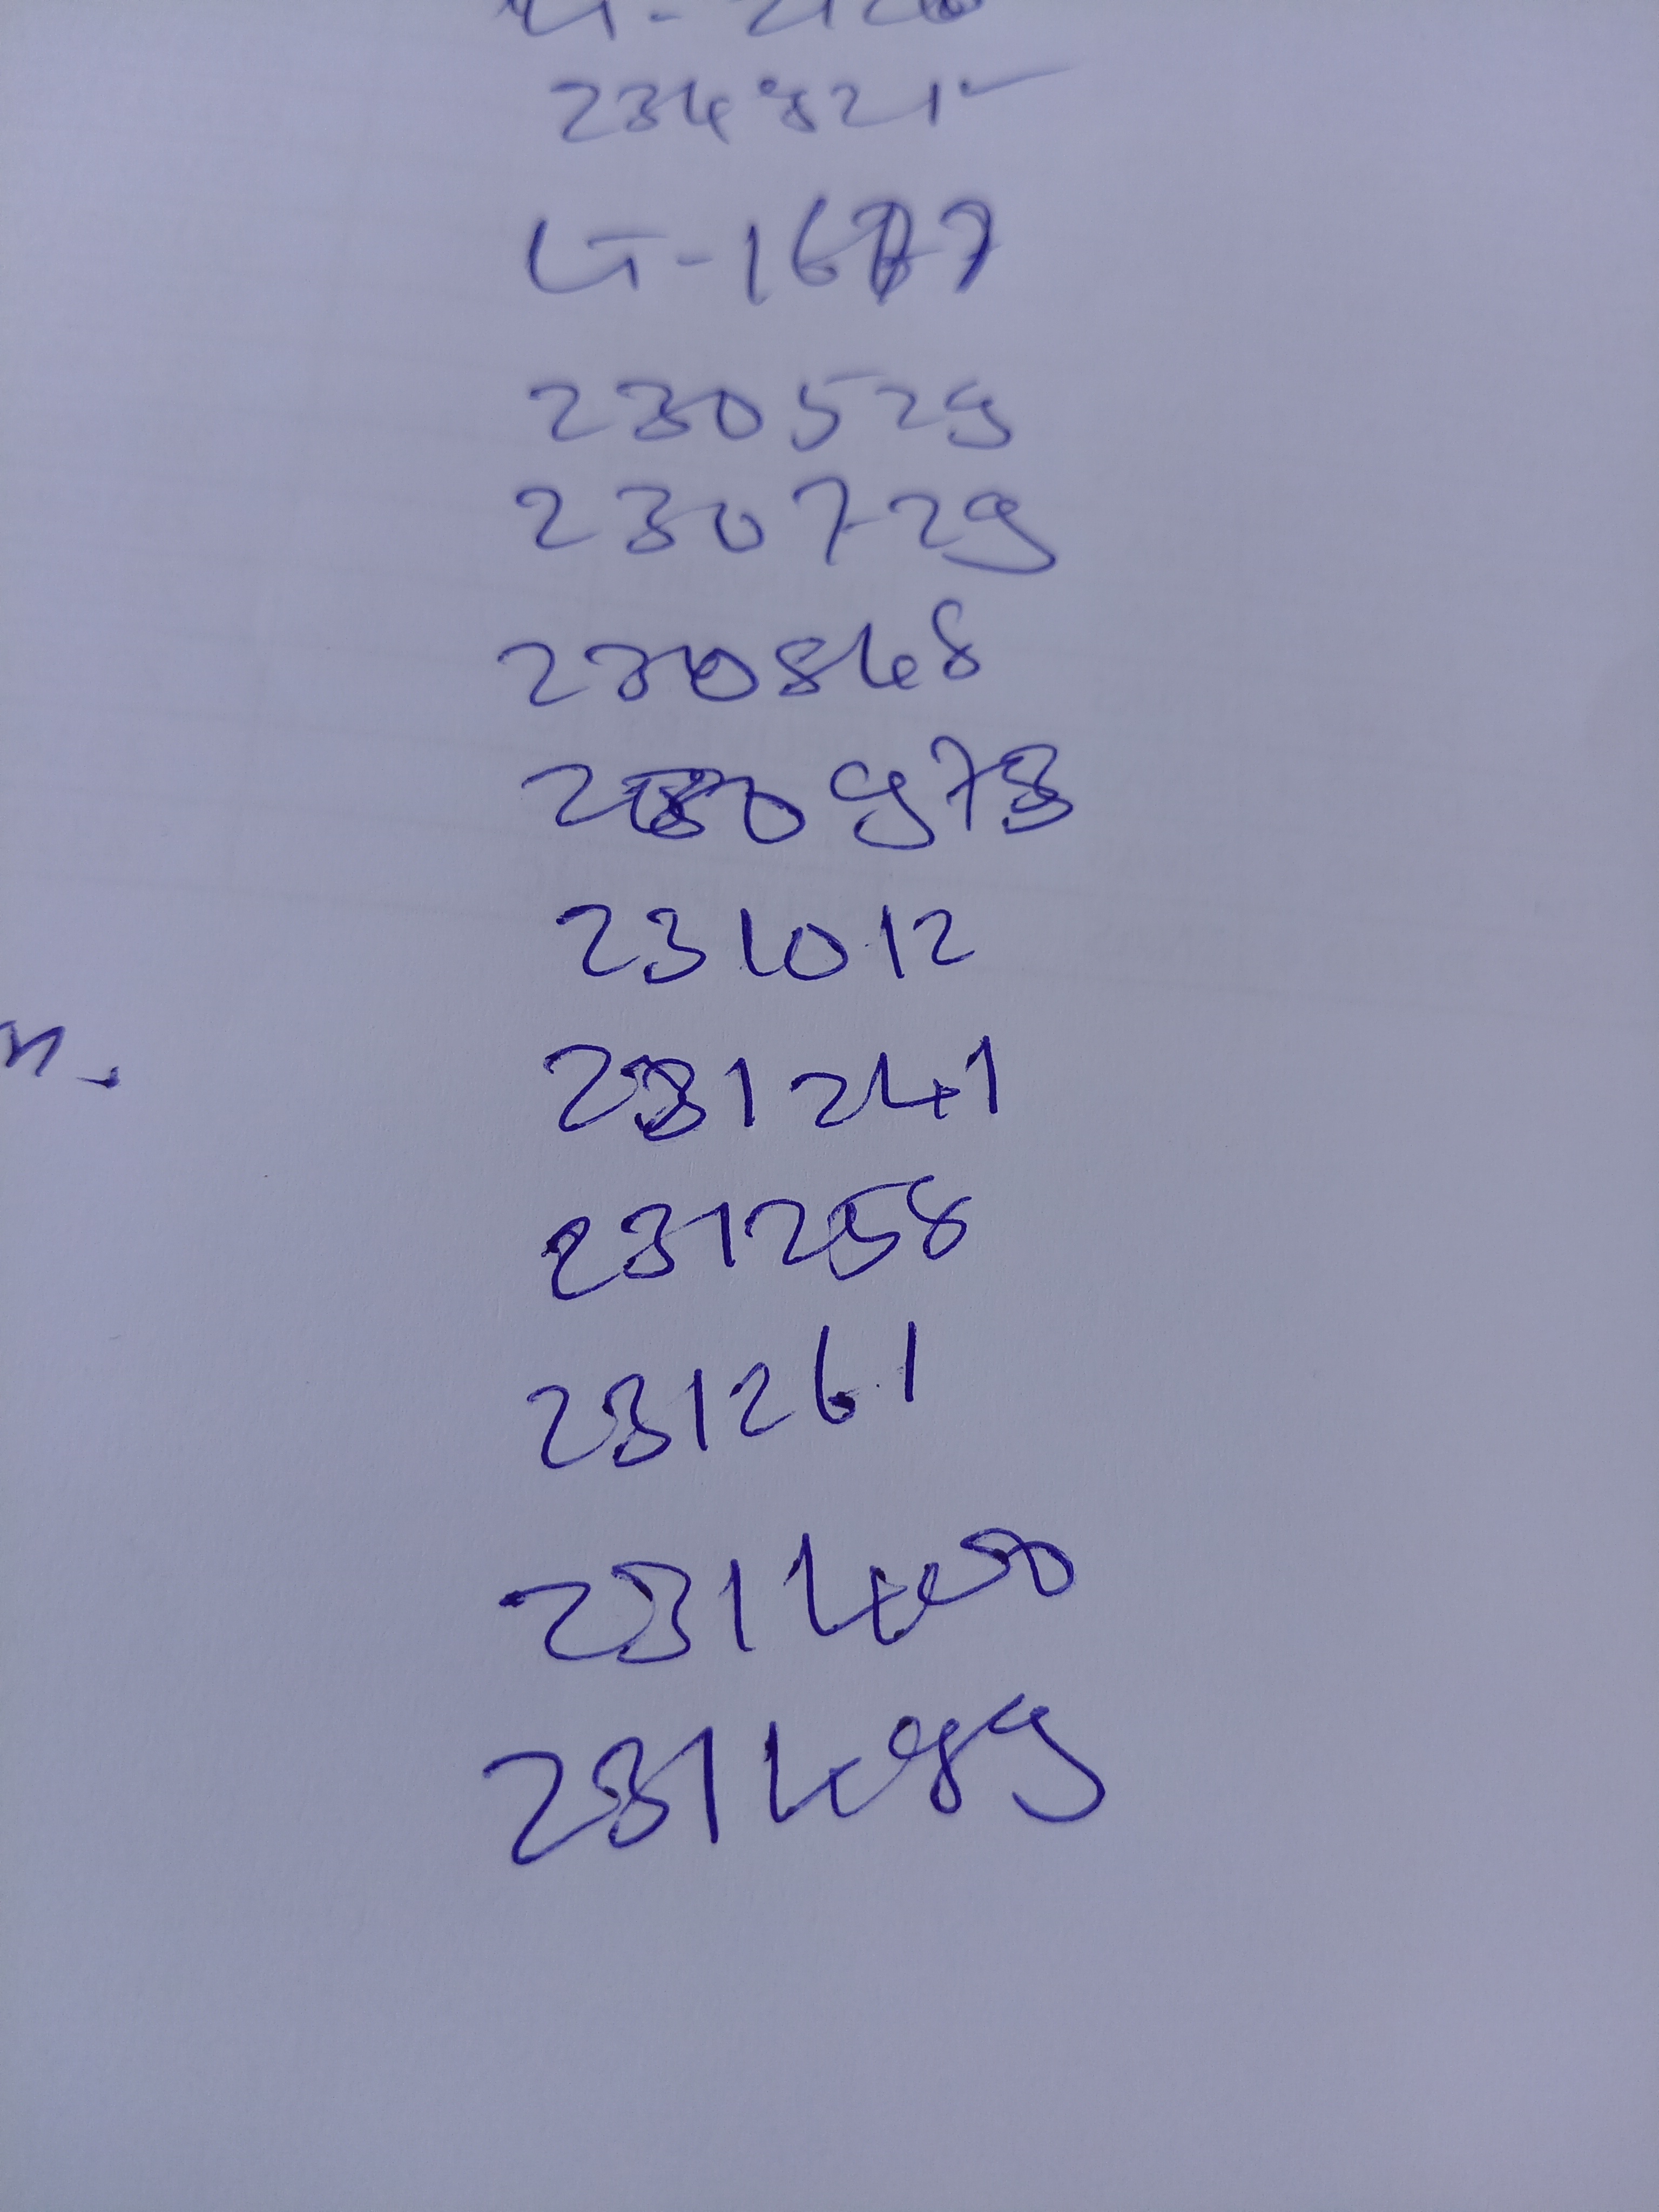 234821
G-1677
230529
230729
230848
230973
231012
231241
231258
231261
n.
231400
231489